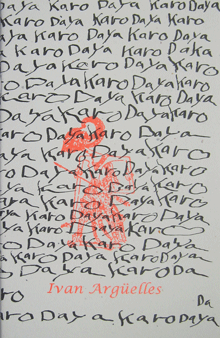 aya Karo Daya Karo Daya Karo
Daya Karo Daya Karo Daya
Daya Karo Daya Karo Daya
Karo Daya Karo Daka
Daya Karo Daya Karo
Daya Karo Daya Karo
Karo Daya Karo Daya
Daya Karo Daya Karo
Karo Daya Karo Daya
aya Karo Daya Karo
Karo Daya Karo Daya
Daya Karo Daya Karo
Karo Daya Karo Daya
Daya Karo Daya
a Karo Daya
Daya Karo Daya
Daya Karo Da
Ivan Argüelles
Karo Da
Daya Karo Daya Karo